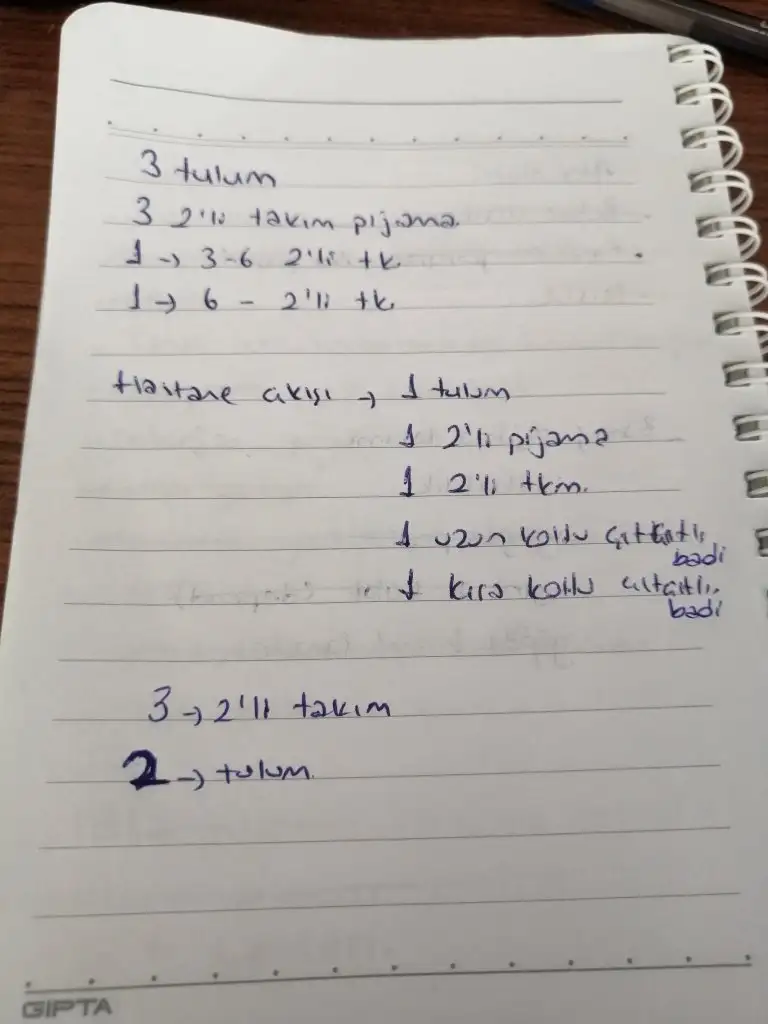 3 tulum
3 2'li takım pijama
1 → 3-6 2'li tk.
1 → 6 - 2'li tk
Hastane çıkışı → 1 tulum
1 2'li pijama
1 2'li tkm.
1 uzun kollu çıtçıtlı badi
1 kısa kollu çıtçıtlı badi
3 → 2'li takım
2 → tulum.
GIPTA